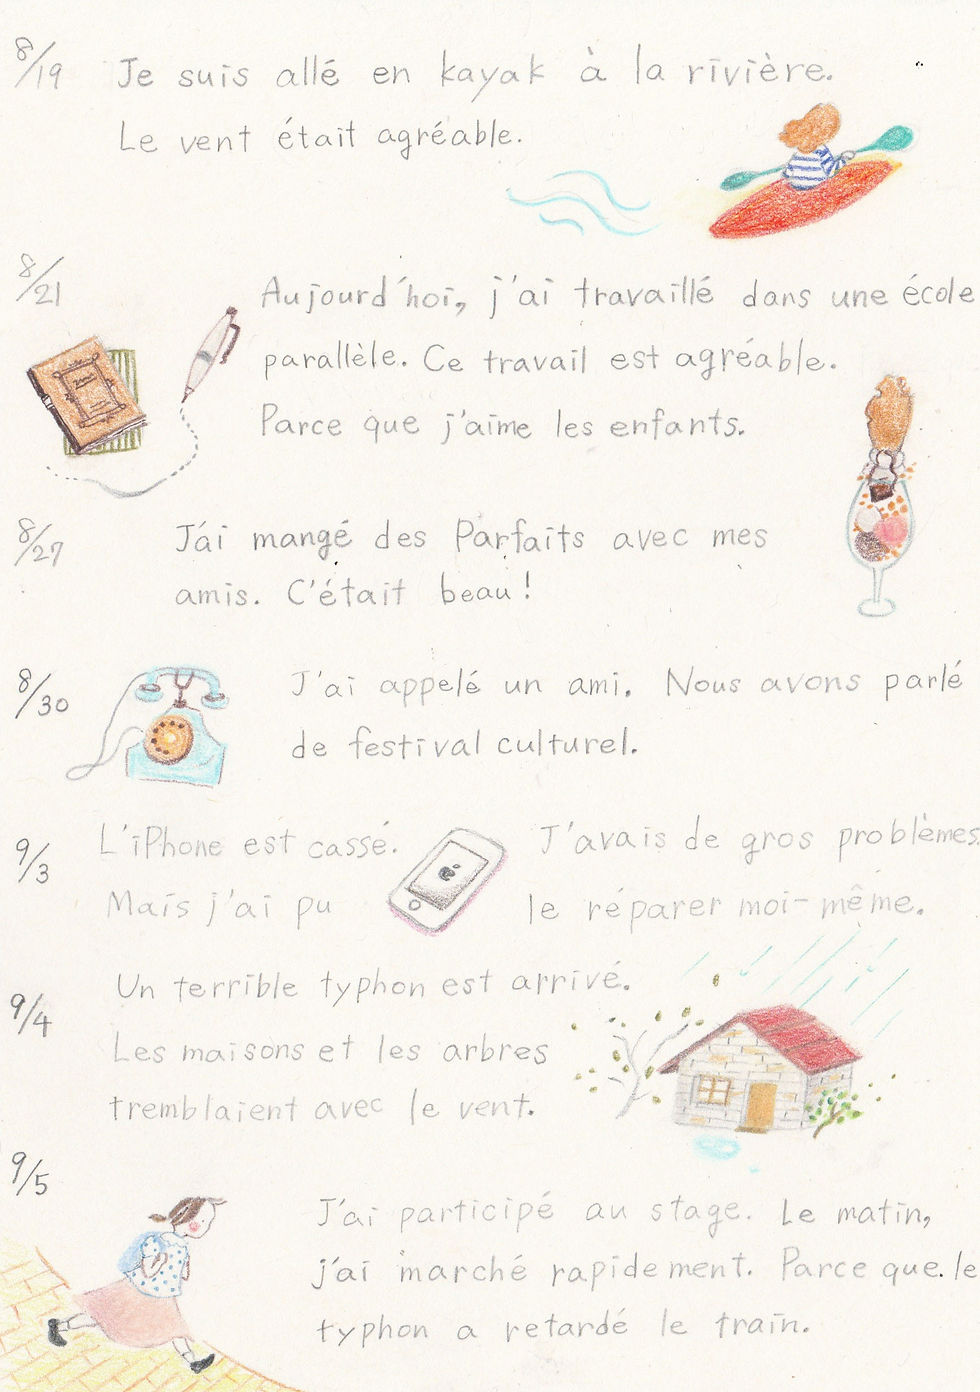 8/19
Je suis allé en kayak à la rivière.
Le vent était agréable.
8/21
Aujourd'hoi, j'ai travaillé dans une école
parallèle. Ce travail est agréable.
Parce que j'aime les enfants.
8/27
J'ai mangé des Parfaits avec mes
amis. C'était beau!
8/30
J'ai appelé un ami. Nous avons parlé
de festival culturel.
9/3
L'iPhone est cassé. J'avais de gros problèmes.
Mais j'ai pu le réparer moi-même.
9/4
Un terrible typhon est arrivé.
Les maisons et les arbres
tremblaient avec le vent.
9/5
J'ai participé au stage. Le matin,
j'ai marché rapidement. Parce que le
typhon a retardé le train.